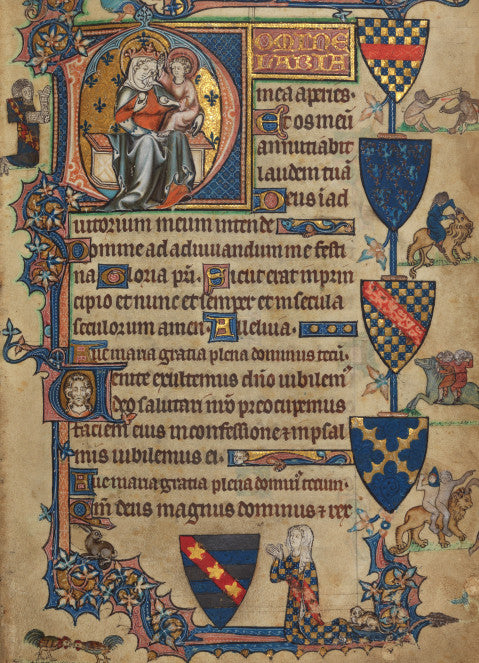 DOMINE
LABIA
mea aperies.
Et os meū
annunciabit
laudem tuā
Deus i ad
iutorium meum intende
Domine ad adiuuandum me festi
na Gloria pr̄i. Sicut erat in prin
cipio et nunc et semper et in secula
seculorum amen. Alleluia.
Aue maria gratia plena dominus tecū.
Uenite exultemus dn̄o iubilemꝰ
deo salutari nr̄o preocupemus
faciem eius in confessione ⁊ in psal
mis iubilemus ei.
Aue maria gratia plena dominꝰ tecum.
Qm̄ deus magnus dominus ⁊ rex